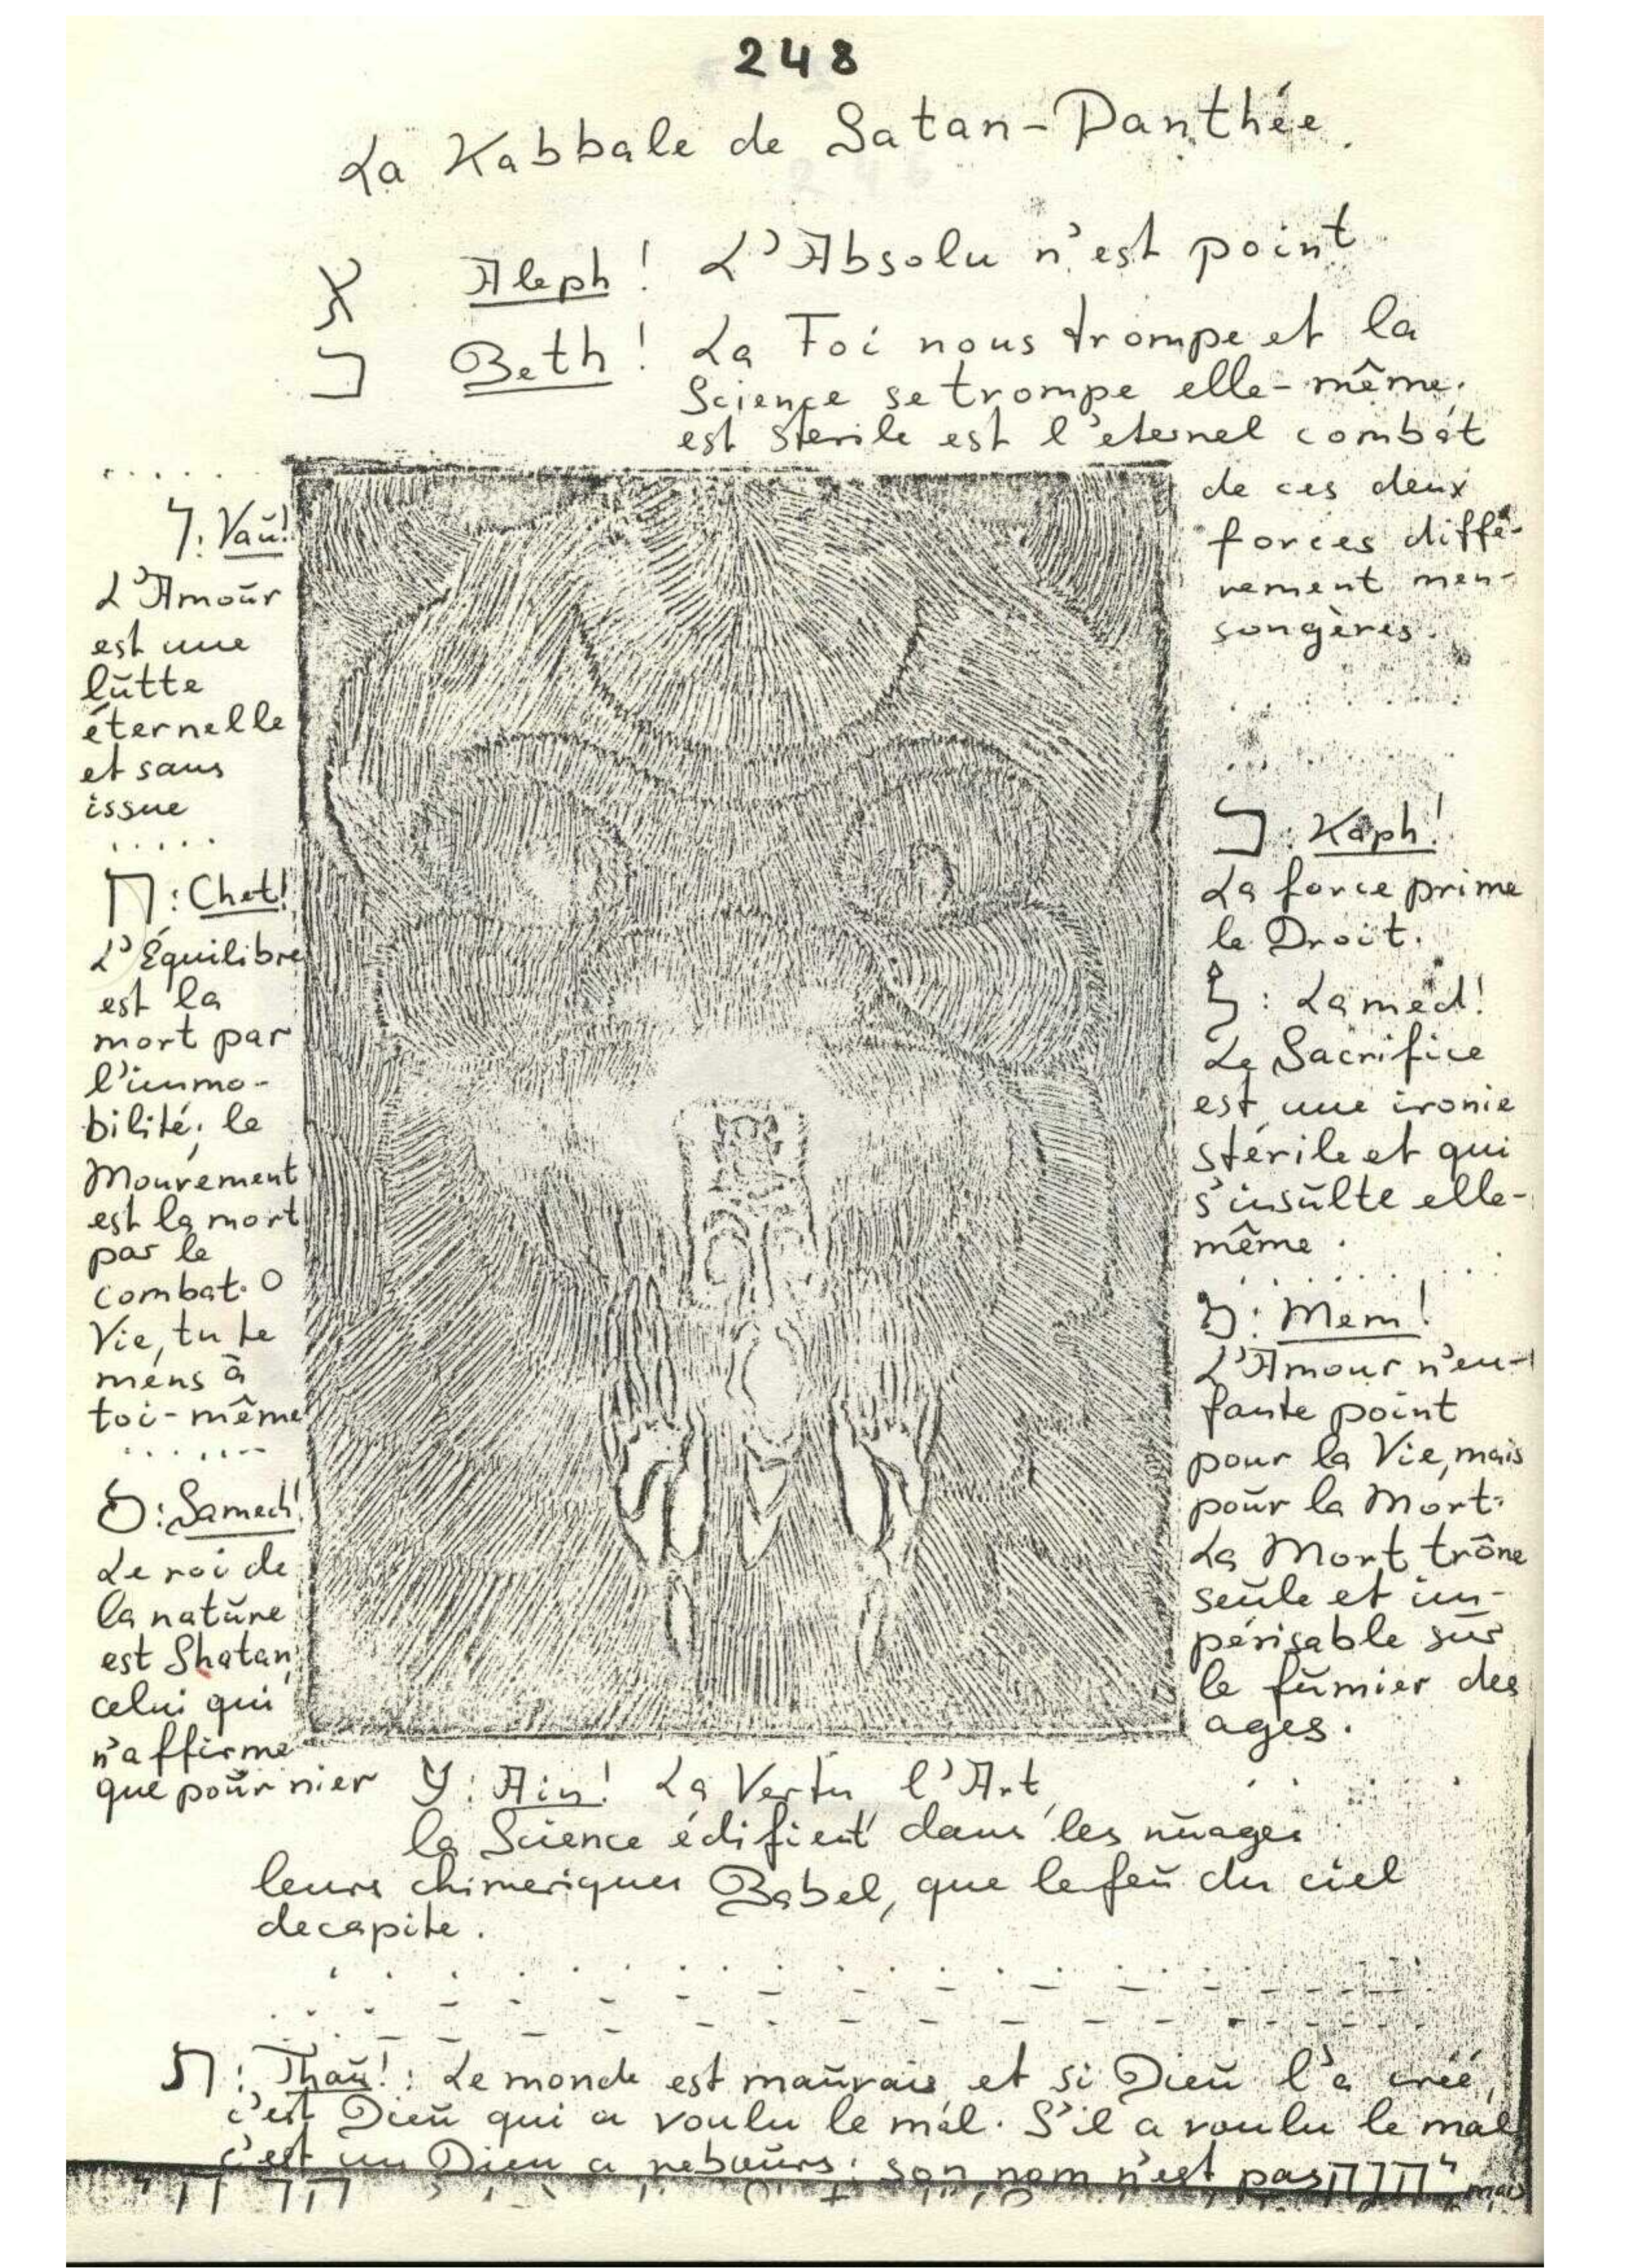 248
La Kabbale de Satan-Panthée.
א Aleph! L'Absolu n'est point
ב Beth! La Foi nous trompe et la
Science se trompe elle-même.
est sterile est l'eternel combat
de ces deux
forces diffé-
remment men-
songères.
ו: Vaŭ!
L'Amoŭr
est une
lŭtte
éternelle
et sans
issue
ח: Chet!
L'Équilibre
est la
mort par
l'immo-
bilité; le
Mouvement
est la mort
par le
combat. O
Vie, tu te
mens à
toi-même
ס: Samech!
Le roi de
la natŭre
est Shatan,
celui qui
n'affirme
que poŭr nier
כ: Kaph!
La force prime
le Droit.
ל: Lamed!
Le Sacrifice
est une ironie
stérile et qui
s'insŭlte elle-
même.
מ: Mem!
L'Amour n'en-
fante point
pour la Vie, mais
poŭr la Mort.
La Mort trône
seŭle et im-
périsable sŭr
le fŭmier des
ages.
ע: Ain! La Vertu, l'Art,
la Science édifient dans les nŭages
leurs chimeriques Babel, que le feŭ du ciel
decapite.
ת: Thaŭ!: Le monde est maŭvais, et si Dieŭ l'a créé,
c'est Dieŭ qui a voulu le mal. S'il a voulu le mal
c'est un Dieu a reboŭrs: son nom n'est pas יהוה mais